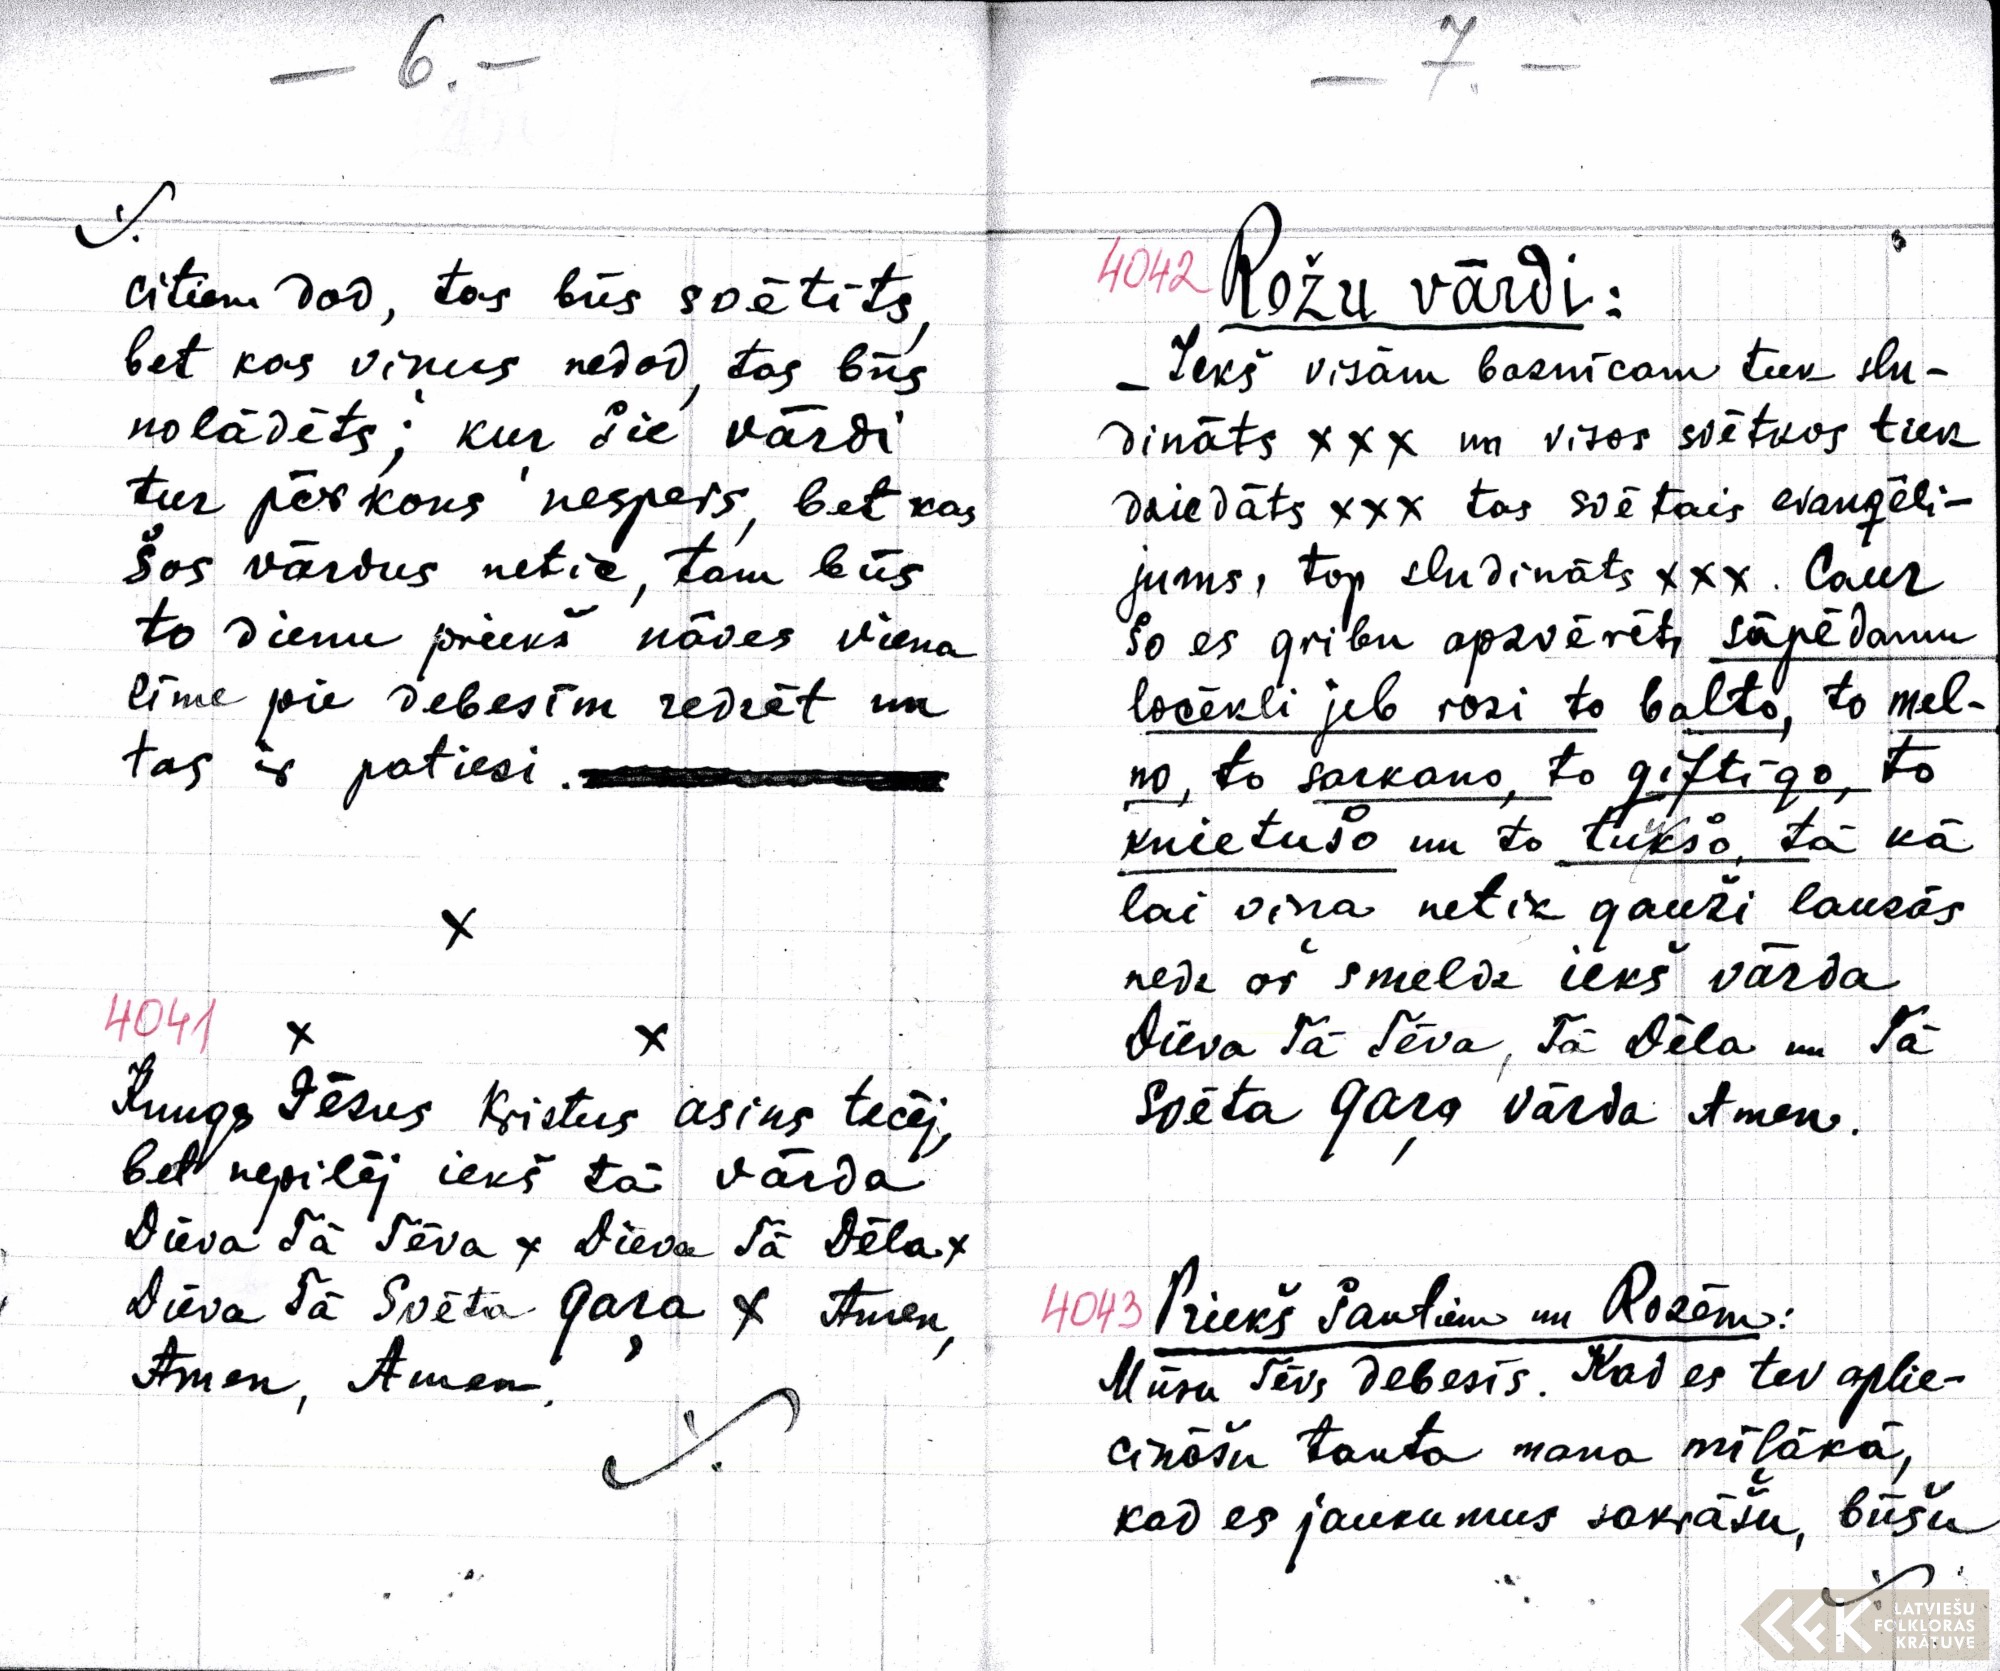 — 6. —
·/.
citiem dod, tas būs svētīts,
bet kas viņus nedod, tas būs
nolādēts; kur šie vārdi
tur pērkons nespers, bet kas
šos vārdus netic, tam būs
to dienu priekš nāves viena
zīme pie debesīm redzēt un
tas ir patiesi.
x
4041
x x
Kungs Jēzus Kristus asins tecēj,
bet nepilēj iekš tā vārda
Dieva Tā Tēva x Dieva Tā Dēla x
Dieva Tā Svēta Gara x Amen,
Amen, Amen.
·/.
— 7. —
4042 Rožu vārdi:
— Iekš visām baznīcam tiek slu-
dināts x x x un visos svētkos tiek
dziedāts x x x tas svētais evaņģēli-
jums, top sludināts x x x. Caur
šo es gribu apzvērēt, sāpēdamu
locekli jeb rozi to balto, to mel-
no, to sarkano, to giftīgo, to
knietušo un to tukšo, tā kā
lai viņa netik gauži lauzās
nedz ar smeldz iekš vārda
Dieva Tā Tēva, Tā Dēla un Tā
Svēta Gara vārda Amen.
4043 Priekš Šautiem un Rozēm:
Mūsu Tēvs debesīs. Kad es tev aplie-
cināšu tauta mana mīļākā,
kad es jaukumus sakrāšu, būšu
·/.
LATVIEŠU
FOLKLORAS
KRĀTUVE